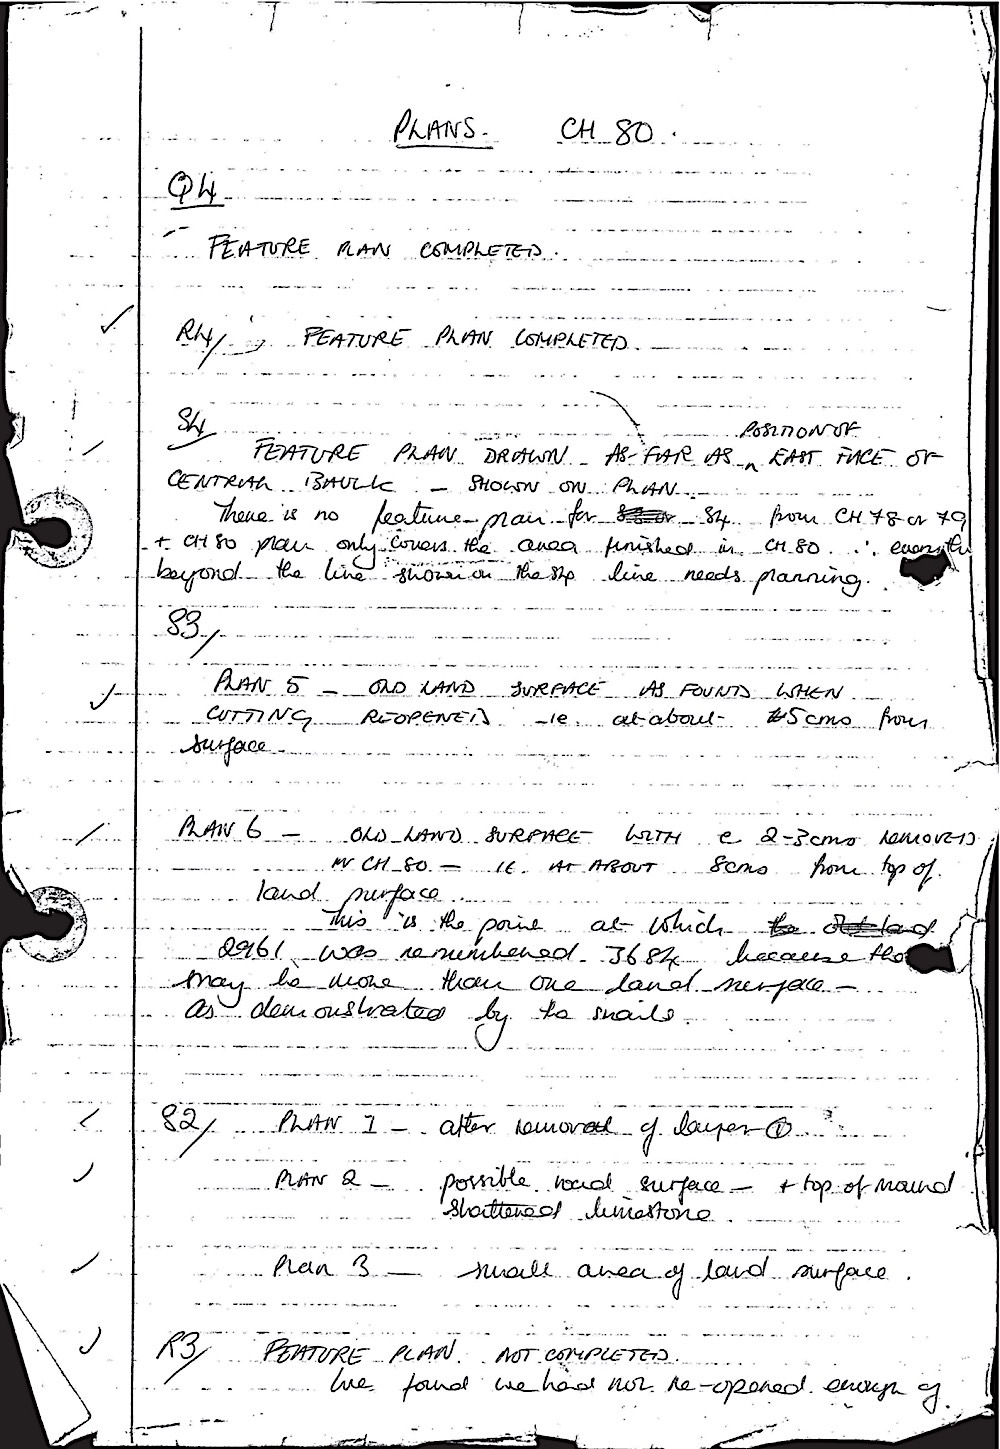 PLANS. CH 80.
Q4
FEATURE PLAN COMPLETED.
R4/ FEATURE PLAN COMPLETED.
S4/
POSITION OF
FEATURE PLAN DRAWN AS FAR AS ^ EAST FACE OF
CENTRAL BAULK – SHOWN ON PLAN.
There is no feature plan for S4 from CH 78 or 79
+ CH 80 plan only covers the area finished in CH 80. ∴
beyond the line shown on the S4 line needs planning.
S3/
PLAN 5 – OLD LAND SURFACE AS FOUND WHEN
CUTTING REOPENED – ie. at about 5cms from
surface.
PLAN 6 – OLD LAND SURFACE WITH c 2-3cms REMOVED
IN CH 80 – IE. AT ABOUT 8cms from top of
land surface.
This is the point at which
2961 was renumbered 3684 because
may be more than one land surface –
as demonstrated by the snails.
S2/ PLAN 1 – after removal of layer ①.
PLAN 2 – possible road surface – + top of mound
shattered limestone.
Plan 3 – small area of land surface.
R3/ FEATURE PLAN NOT COMPLETED.
We found we had not re-opened enough of